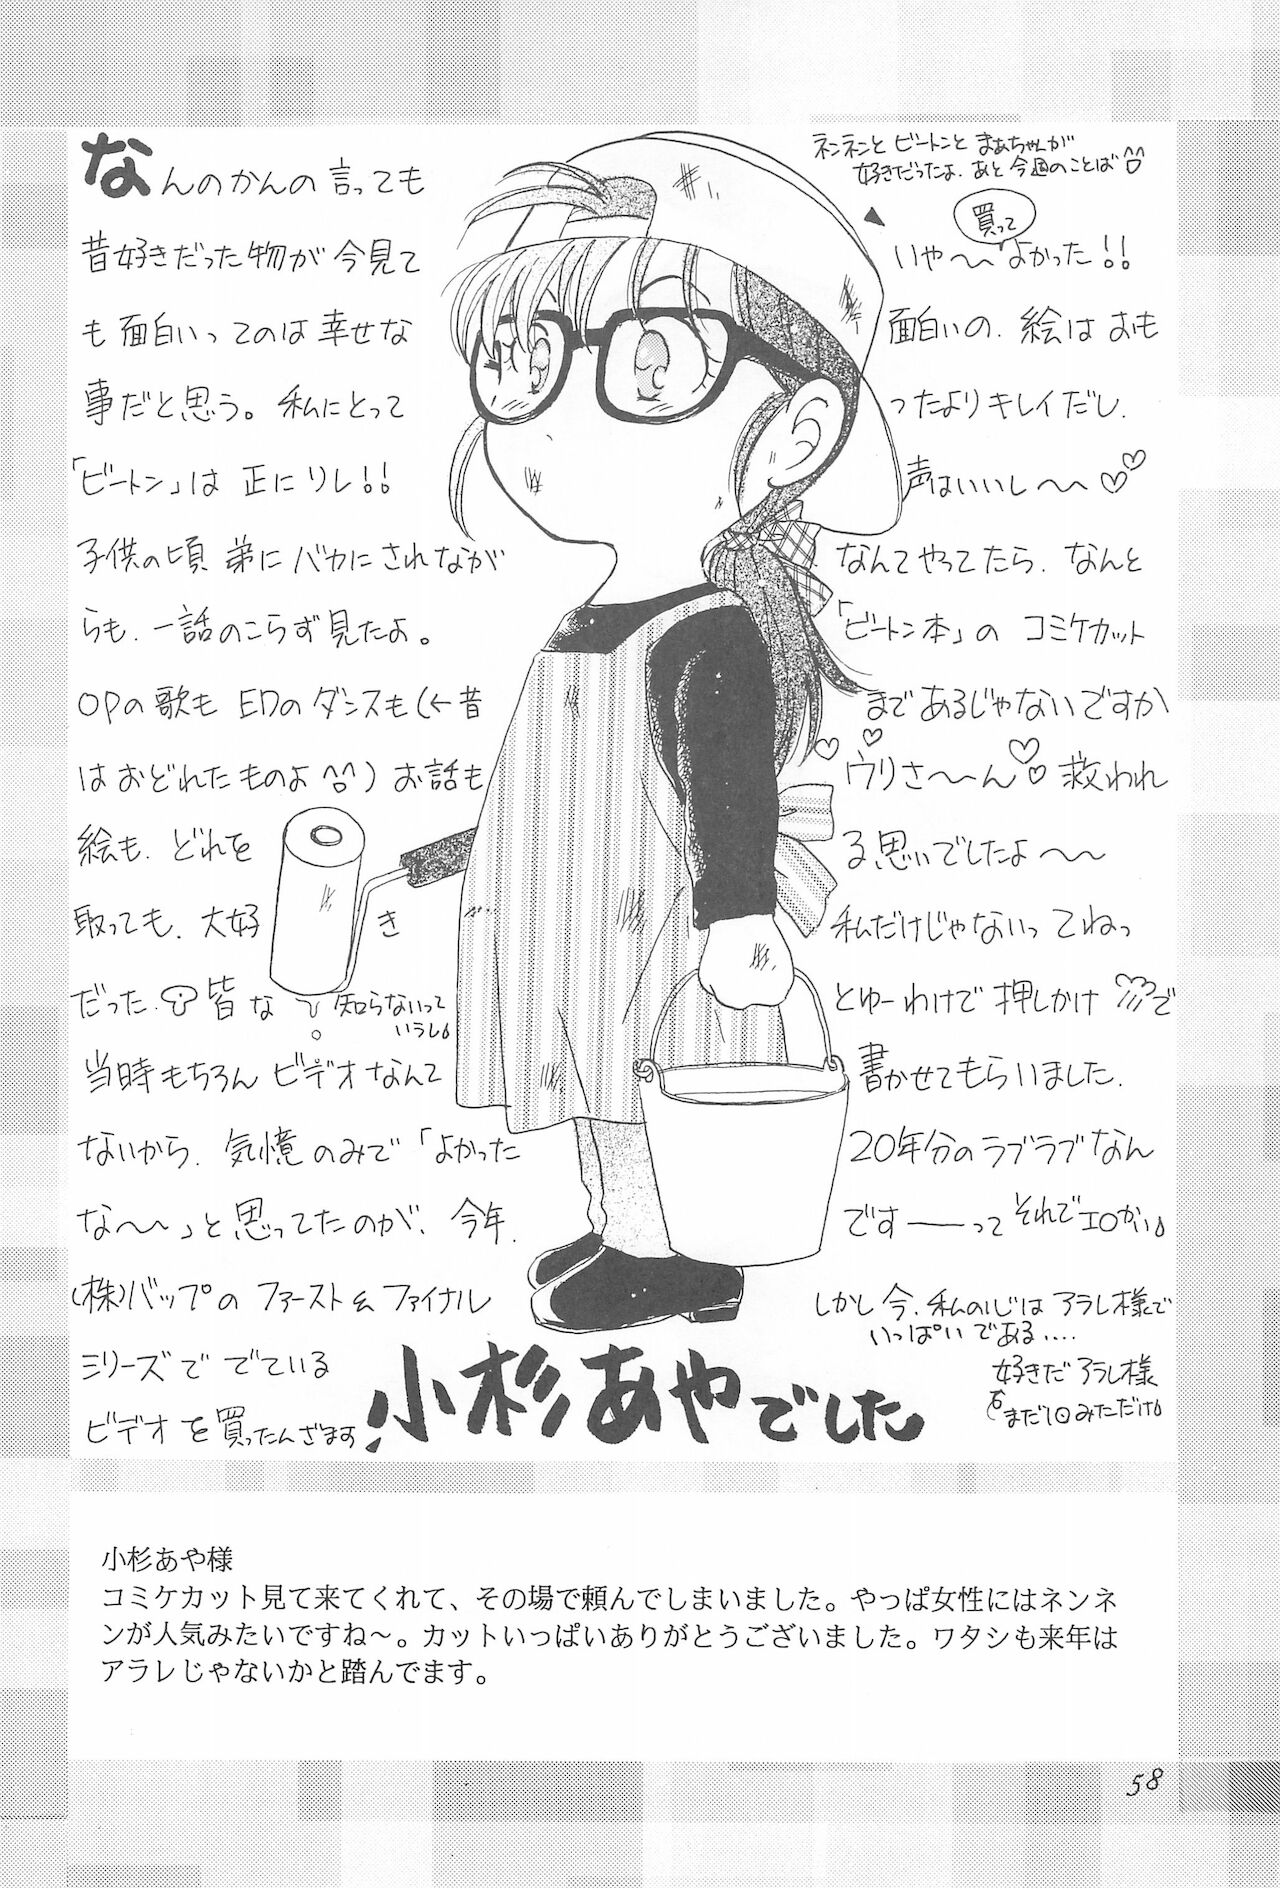 なんのかんの言っても
昔好きだった物が今見て
も面白いってのは幸せな
事だと思う。私にとって
「ビートン」は正にソレ!!
子供の頃弟にバカにされなが
らも、一話のこらず見たよ。
OPの歌もEDのダンスも(←昔
はおどれたものよ^^)お話も
絵も、どれを
取っても、大好き
だった。皆な知らないって
いうし
当時もちろんビデオなんて
ないから、気憶のみで「よかった
な〜〜」と思ってたのが、今年、
(株)バップのファースト&ファイナル
シリーズででている
ビデオを買ったんざます
ネンネンとビートンとまぁちゃんが
好きだったよ。あと今週のことば
買って
いや〜〜よかった!!
面白いの、絵はおも
ったよりキレイだし、
声はいいし〜〜♡♡
なんてやってたら、なんと
「ビートン本」のコミケカット
まであるじゃないですか
♡♡ウリさ〜〜ん♡♡救われ
る思いでしたよ〜〜
私だけじゃないってねっ
とゆーわけで押しかけで
書かせてもらいました。
20年分のラブラブなん
です――ってそれでエロかい
しかし今、私の心はアラレ様で
いっぱいである‥‥
好きだアラレ様
まだ1回みただけ
小杉あやでした
小杉あや様
コミケカット見て来てくれて、その場で頼んでしまいました。やっぱ女性にはネンネ
ンが人気みたいですね〜。カットいっぱいありがとうございました。ワタシも来年は
アラレじゃないかと踏んでます。
58